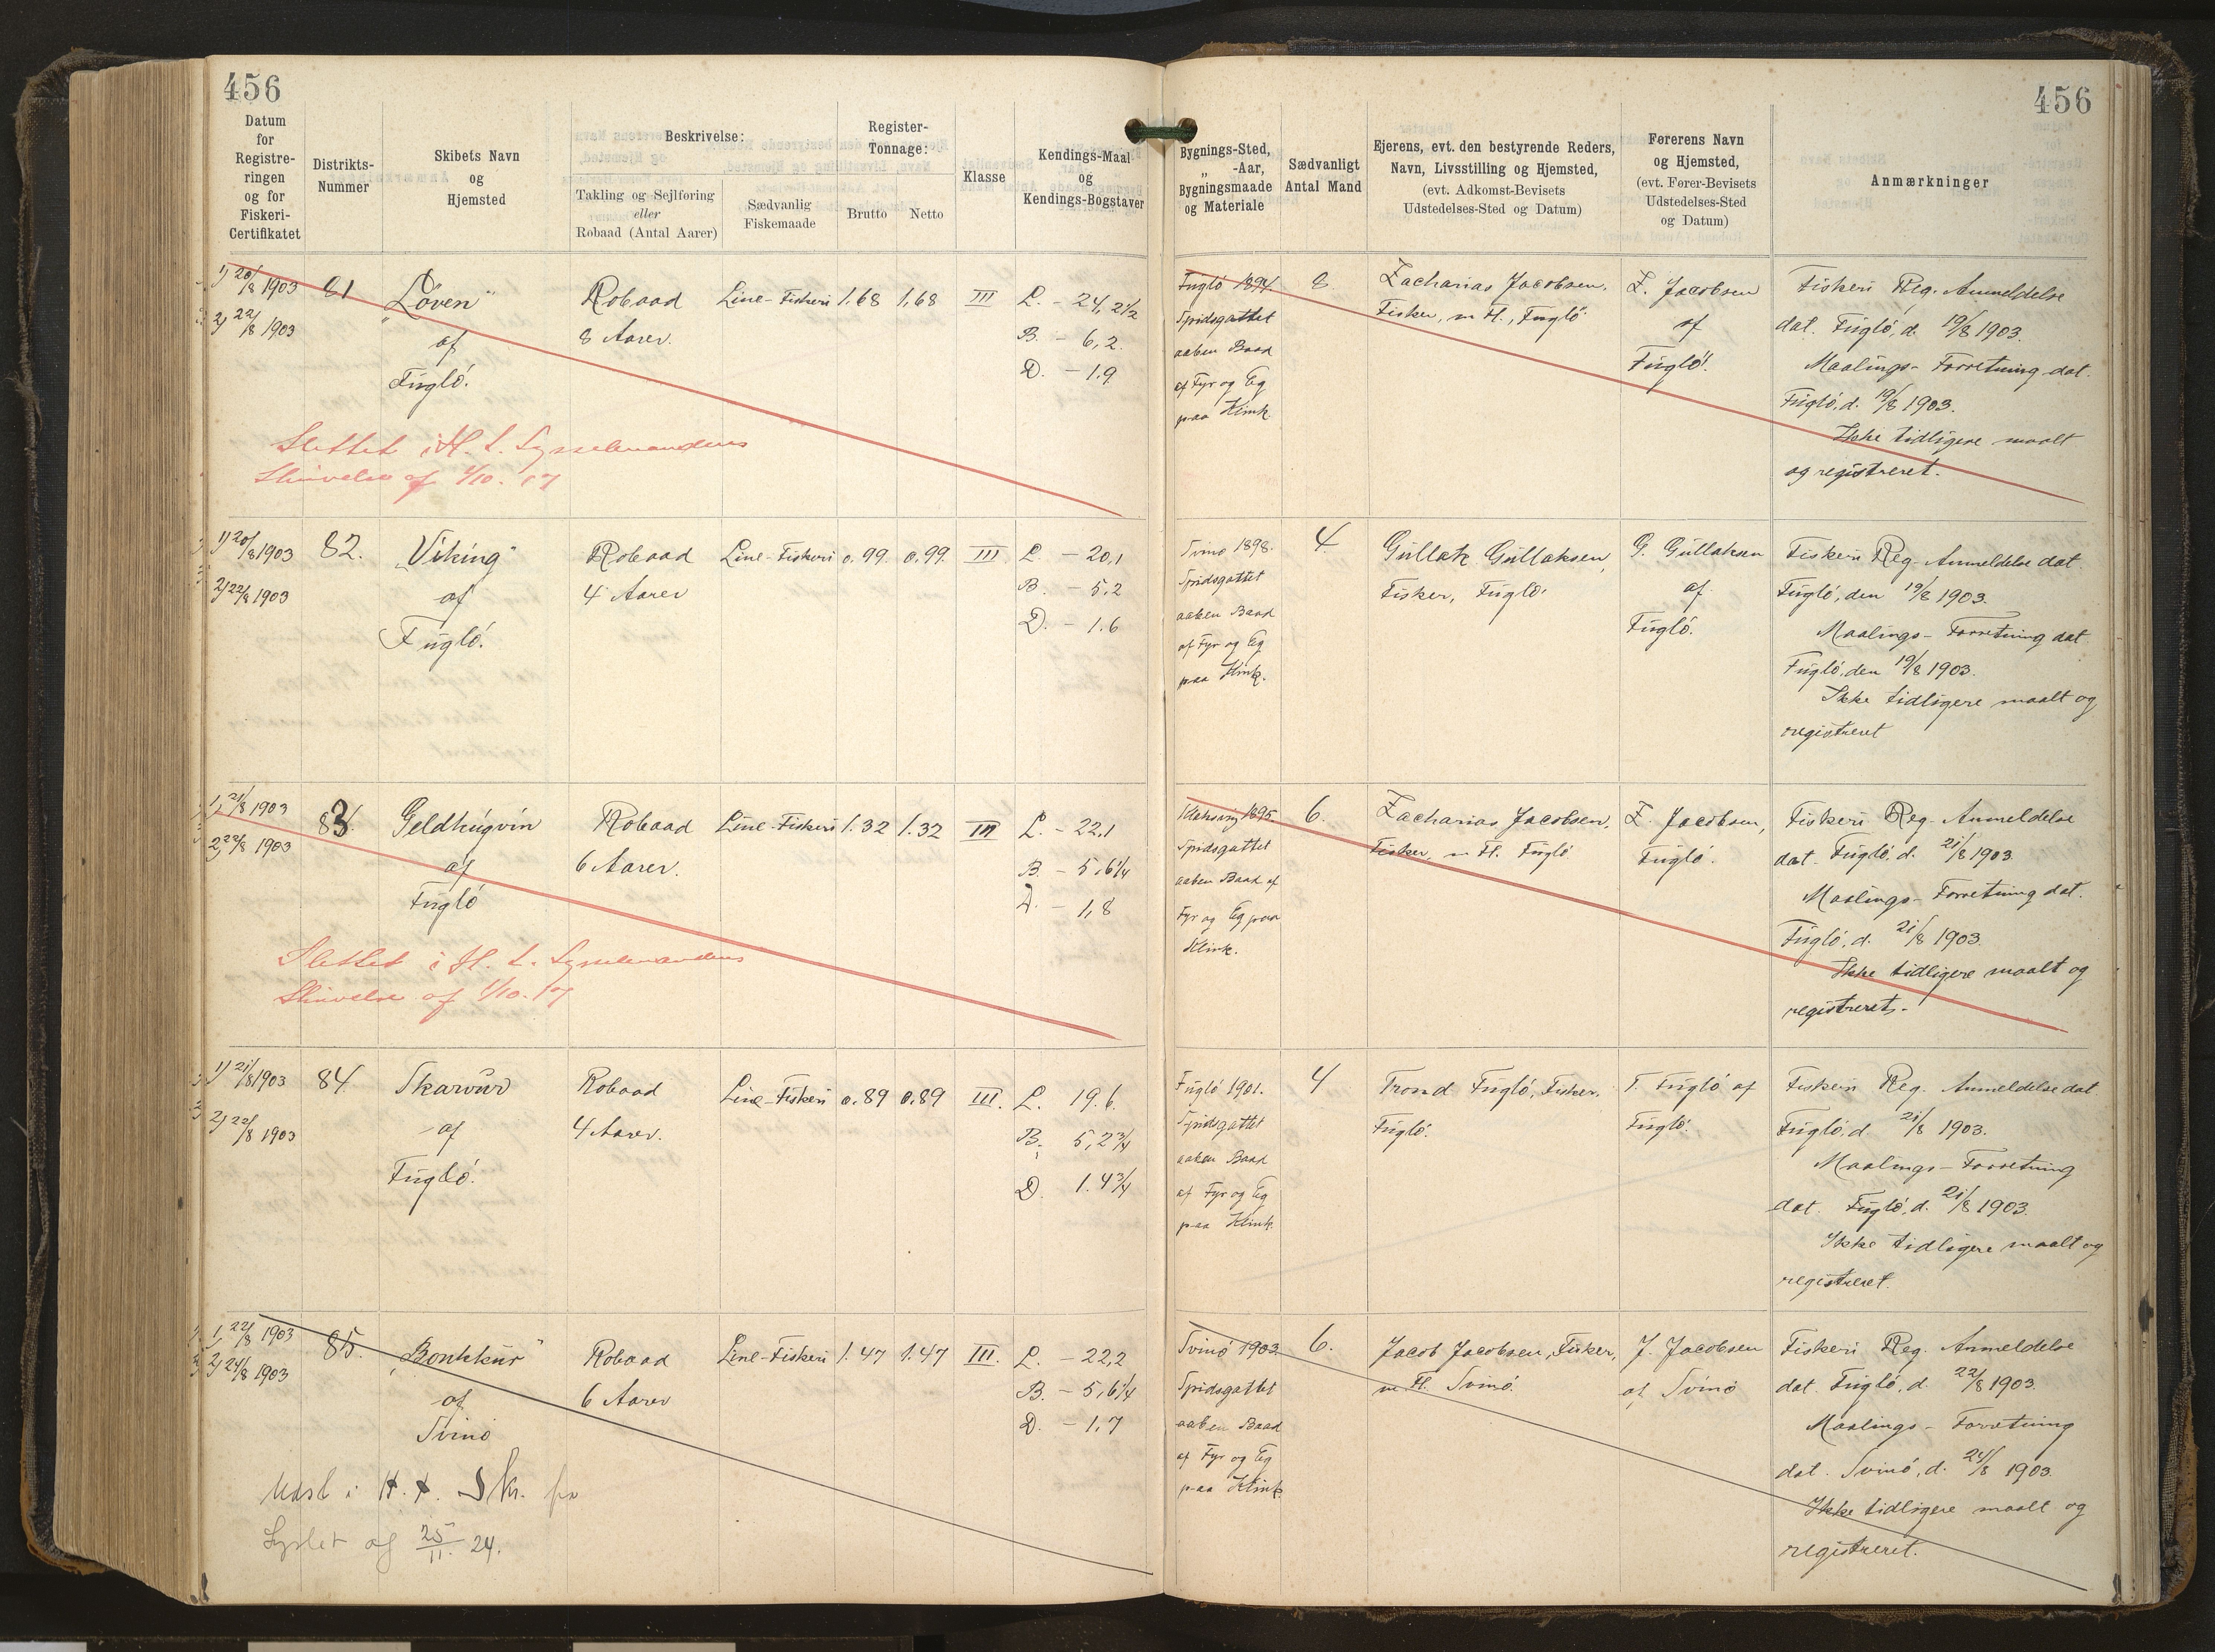 456
456
Datum
for
Registre-
ringen
og for
Fiskeri-
Certifikatet
Distrikts-
Nummer
Skibets Navn
og
Hjemsted
Beskrivelse:
Takling og Sejlføring
eller
Robaad (Antal Aarer)
Sædvanlig
Fiskemaade
Register-
Tonnage:
Brutto
Netto
Klasse
Kendings-Maal
og
Kendings-Bogstaver
Bygnings-Sted,
„ -Aar,
Bygningsmaade
og Materiale
Sædvanligt
Antal Mand
Ejerens, evt. den bestyrende Reders,
Navn, Livsstilling og Hjemsted,
(evt. Adkomst-Bevisets
Udstedelses-Sted og Datum)
Førerens Navn
og Hjemsted,
(evt. Fører-Bevisets
Udstedelses-Sted
og Datum)
Anmærkninger
1) 20/8 1903
2) 22/8 1903
81
„Löven"
af
Fúgló.
Robaad
8 Aarer.
Line-Fiskeri
1.68
1,68
III
L. - 24, 2½
B. - 6,2.
D. - 1.9
Fúgló 1894
Spidsgattet
aaben Baad
af Fyr og Eg
paa Klink.
8.
Zacharias Jacobsen,
Fisker, m H., Fúgló.
Z. Jacobsen
af
Fúgló.
Fiskeri Reg. Anmeldelse
dat. Fúgló, d. 19/8 1903.
Maalings-Forretning dat.
Fúgló, d. 19/8 1903.
Ikke tidligere maalt
og registreret.
Slettet i H. t. Sysselmandens
Skrivelse af 1/10. 17
1) 20/8 1903
2) 22/8 1903
82.
„Viking"
af
Fúgló.
Robaad
4 Aarer
Line-Fiskeri
0.99.
0.99.
III.
L. - 20,1
B. - 5,2
D. - 1.6
Svinö 1898.
Spidsgattet
aaben Baad
af Fyr og Eg
paa Klink.
4.
Gúllak Gúllaksen,
Fisker, Fúgló.
G. Gúllaksen
af
Fúgló.
Fiskeri Reg. Anmeldelse dat.
Fúgló, den 19/8 1903.
Maalings-Forretning dat.
Fúgló, den 19/8 1903.
Ikke tidligere maalt og
registreret
1, 21/8 1903
2, 22/8 1903
83.
Geldhúgvin
af
Fúgló
Robaad
6 Aarer.
Line-Fiskeri
1.32
1.32
III
L. - 22,1
B. - 5,6¼
D. - 1,8
Klaksvig 1895
Spidsgattet
aaben Baad af
Fyr og Eg paa
Klink.
6.
Zacharias Jacobsen,
Fisker, m H. Fúgló
Z. Jacobsen,
Fúgló.
Fiskeri Reg. Anmeldelse
dat. Fúgló, d. 21/8 1903.
Maalings-Forretning dat.
Fúgló, d. 21/8 1903.
Ikke tidligere maalt og
registreret.
Slettet i H. t. Sysselmandens
Skrivelse af 1/10. 17
1) 21/8 1903
2) 22/8 1903
84.
Skarvúr
af
Fúgló.
Robaad
4 Aarer.
Line-Fiskeri
0.89
0.89
III.
L. 19.6.
B. 5,2¾
D. 1.4¾
Fúgló 1901.
Spidsgattet
aaben Baad
af Fyr og Eg
paa Klink.
4
Trond Fúgló, Fisker.
Fúgló.
T. Fúgló af
Fúgló.
Fiskeri Reg. Anmeldelse dat
Fúgló, d. 21/8 1903.
Maalings-Forretning
dat. Fúgló, d. 21/8 1903.
Ikke tidligere maalt og
registreret.
1, 22/8 1903
2, 24/8 1903
85.
„Bonkkúr"
af
Svinö
Robaad
6 Aarer
Line-Fiskeri
1.47
1.47
III.
L. - 22,2
B. - 5,6¼
D. - 1,7
Svinö 1903.
Spidsgattet
aaben Baad
af Fyr og Eg
paa Klink.
6.
Jacob Jacobsen, Fisker,
m H. Svinö.
J. Jacobsen
af Svinö
Fiskeri Reg. Anmeldelse
dat. Fúgló, d. 22/8 1903.
Maalings-Forretning
dat. Svinö, d. 24/8 1903.
Ikke tidligere maalt og
registreret.
Udsl i H. t. Skr. fra
Syslet af 25/11. 24.